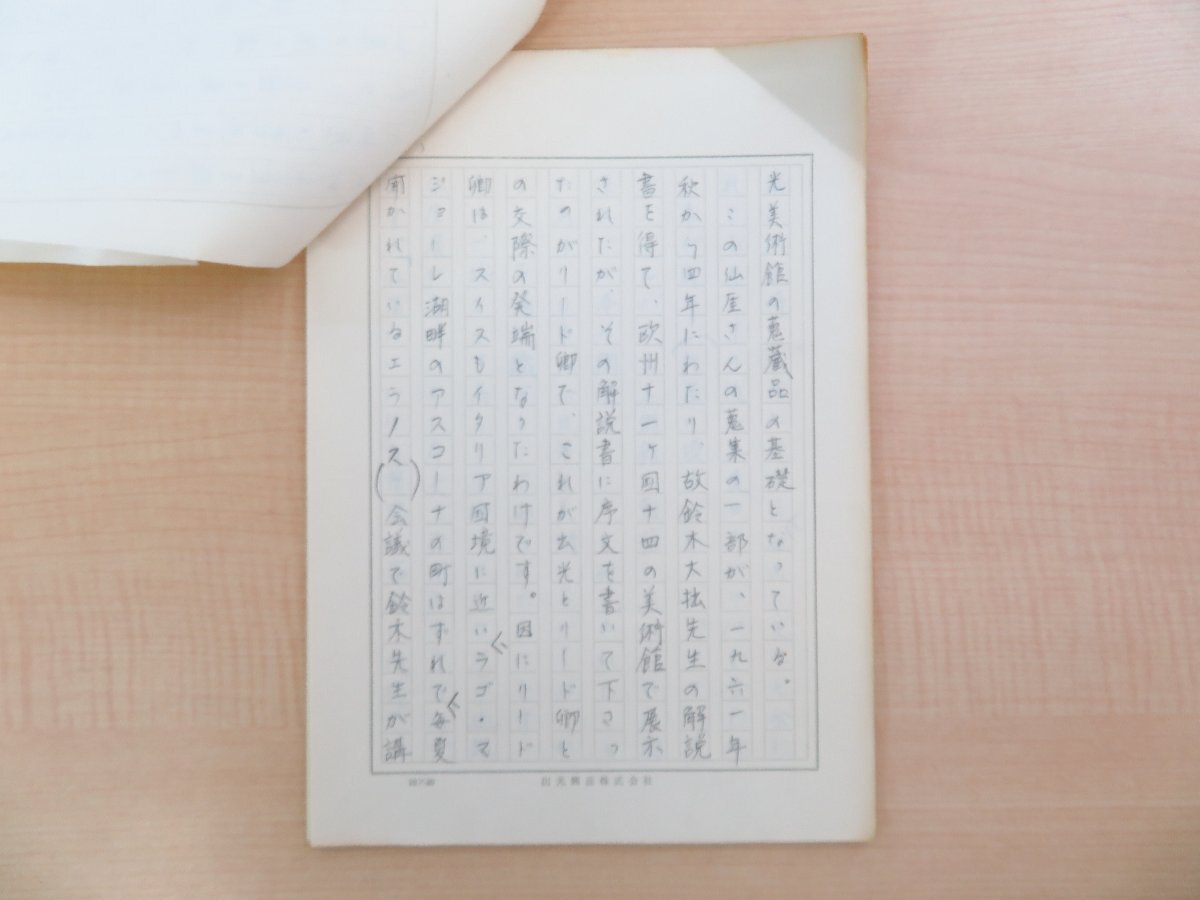 光美術館の蒐蔵品の基礎となっている。
この仙厓さんの蒐集の一部が、一九六一年
秋から四年にわたり、故鈴木大拙先生の解説
書を得て、欧州十一ヶ国十四の美術館で展示
されたが、その解説書に序文を書いて下さっ
たのがリード卿で、これが出光とリード卿と
の交際の発端となったわけです。因にリード
卿は、スイスもイタリア国境に近いラゴ・マ
ジョーレ湖畔のアスコーナの町はずれで毎夏
開かれているエラノス()会議で鈴木先生が講
出光興産株式会社